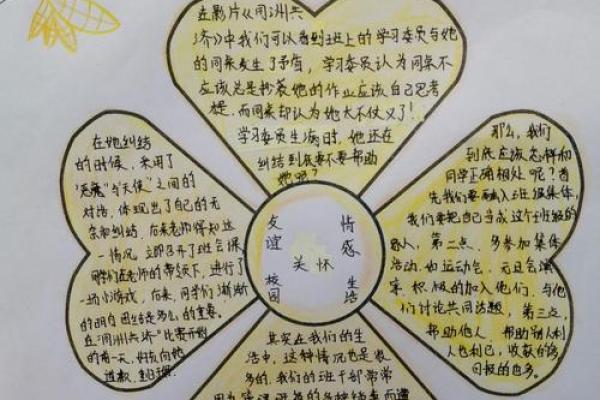 在影片《同洲共
济》中我们可以看到班上的学习委员与她
的同桌发生了矛盾，学习委员认为同桌不
应该总是抄袭她的作业应该自己思考
而同桌却认为她太不仗义了！
学习委员生病时，她还在
纠结到底要不要帮助
她呢？
在她纠结
的时候，采用了
"恶魔"与"天使"之间的
对话，体现出了自己的无
奈和纠结，后来老师得知这
一情况，立即召开了班会课
同学们在老师的带领下，进行了
一场小游戏，后来，同学们渐渐
的明白团结是多么的重要，
在"同洲共济"比赛开到
的有一天，好友向她
道歉，
友谊
情感
关怀
校园
生活
那么，我们
到底应该怎样和
同学正确相处呢？首
先我们要融入班级集体，
我们要把自己当成这个班级的
主人，第二点，多参加集体
活动，如运动会，元旦会演
等，积极的加入他们，与他
们讨论共同话题，第三点，
帮助他人，帮助别人利
人也利己，收获的将
回报的也多。
其实在我们的生
活中，这种情况也是很
多的，我们的班干部常常
因为管理班级的各种琐事而遭